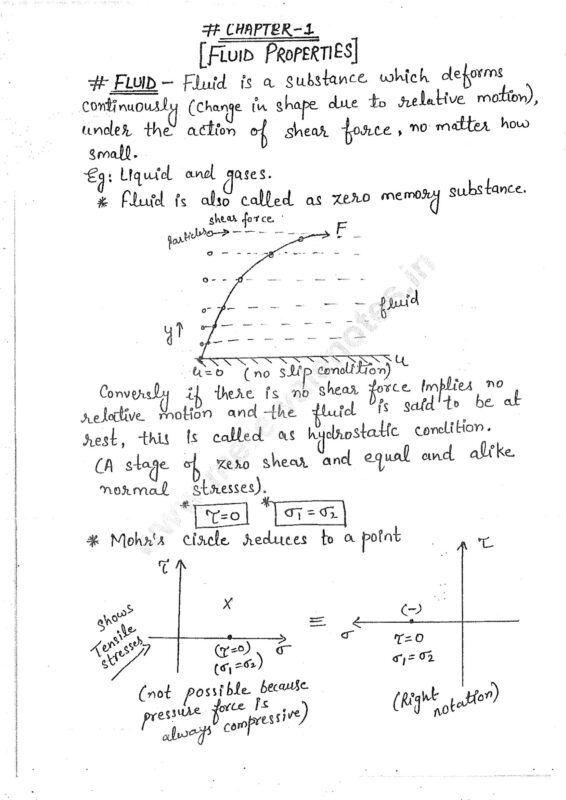 # CHAPTER-1
[FLUID PROPERTIES]
# FLUID – Fluid is a substance which deforms
continuously (change in shape due to relative motion),
under the action of shear force, no matter how
small.
Eg: Liquid and gases.
* Fluid is also called as zero memory substance.
shear force
particles
F
fluid
y↑
u=0 (no slip condition) u
Conversly if there is no shear force implies no
relative motion and the fluid is said to be at
rest, this is called as hydrostatic condition.
(A stage of zero shear and equal and alike
normal stresses).
* τ=0 * σ1 = σ2
* Mohr's circle reduces to a point
τ
x
shows
Tensile
stresses
(τ=0)
(σ1=σ2)
σ
(not possible because
pressure force is
always compressive)
≡
τ
(-)
σ
τ=0
σ1=σ2
(Right
notation)